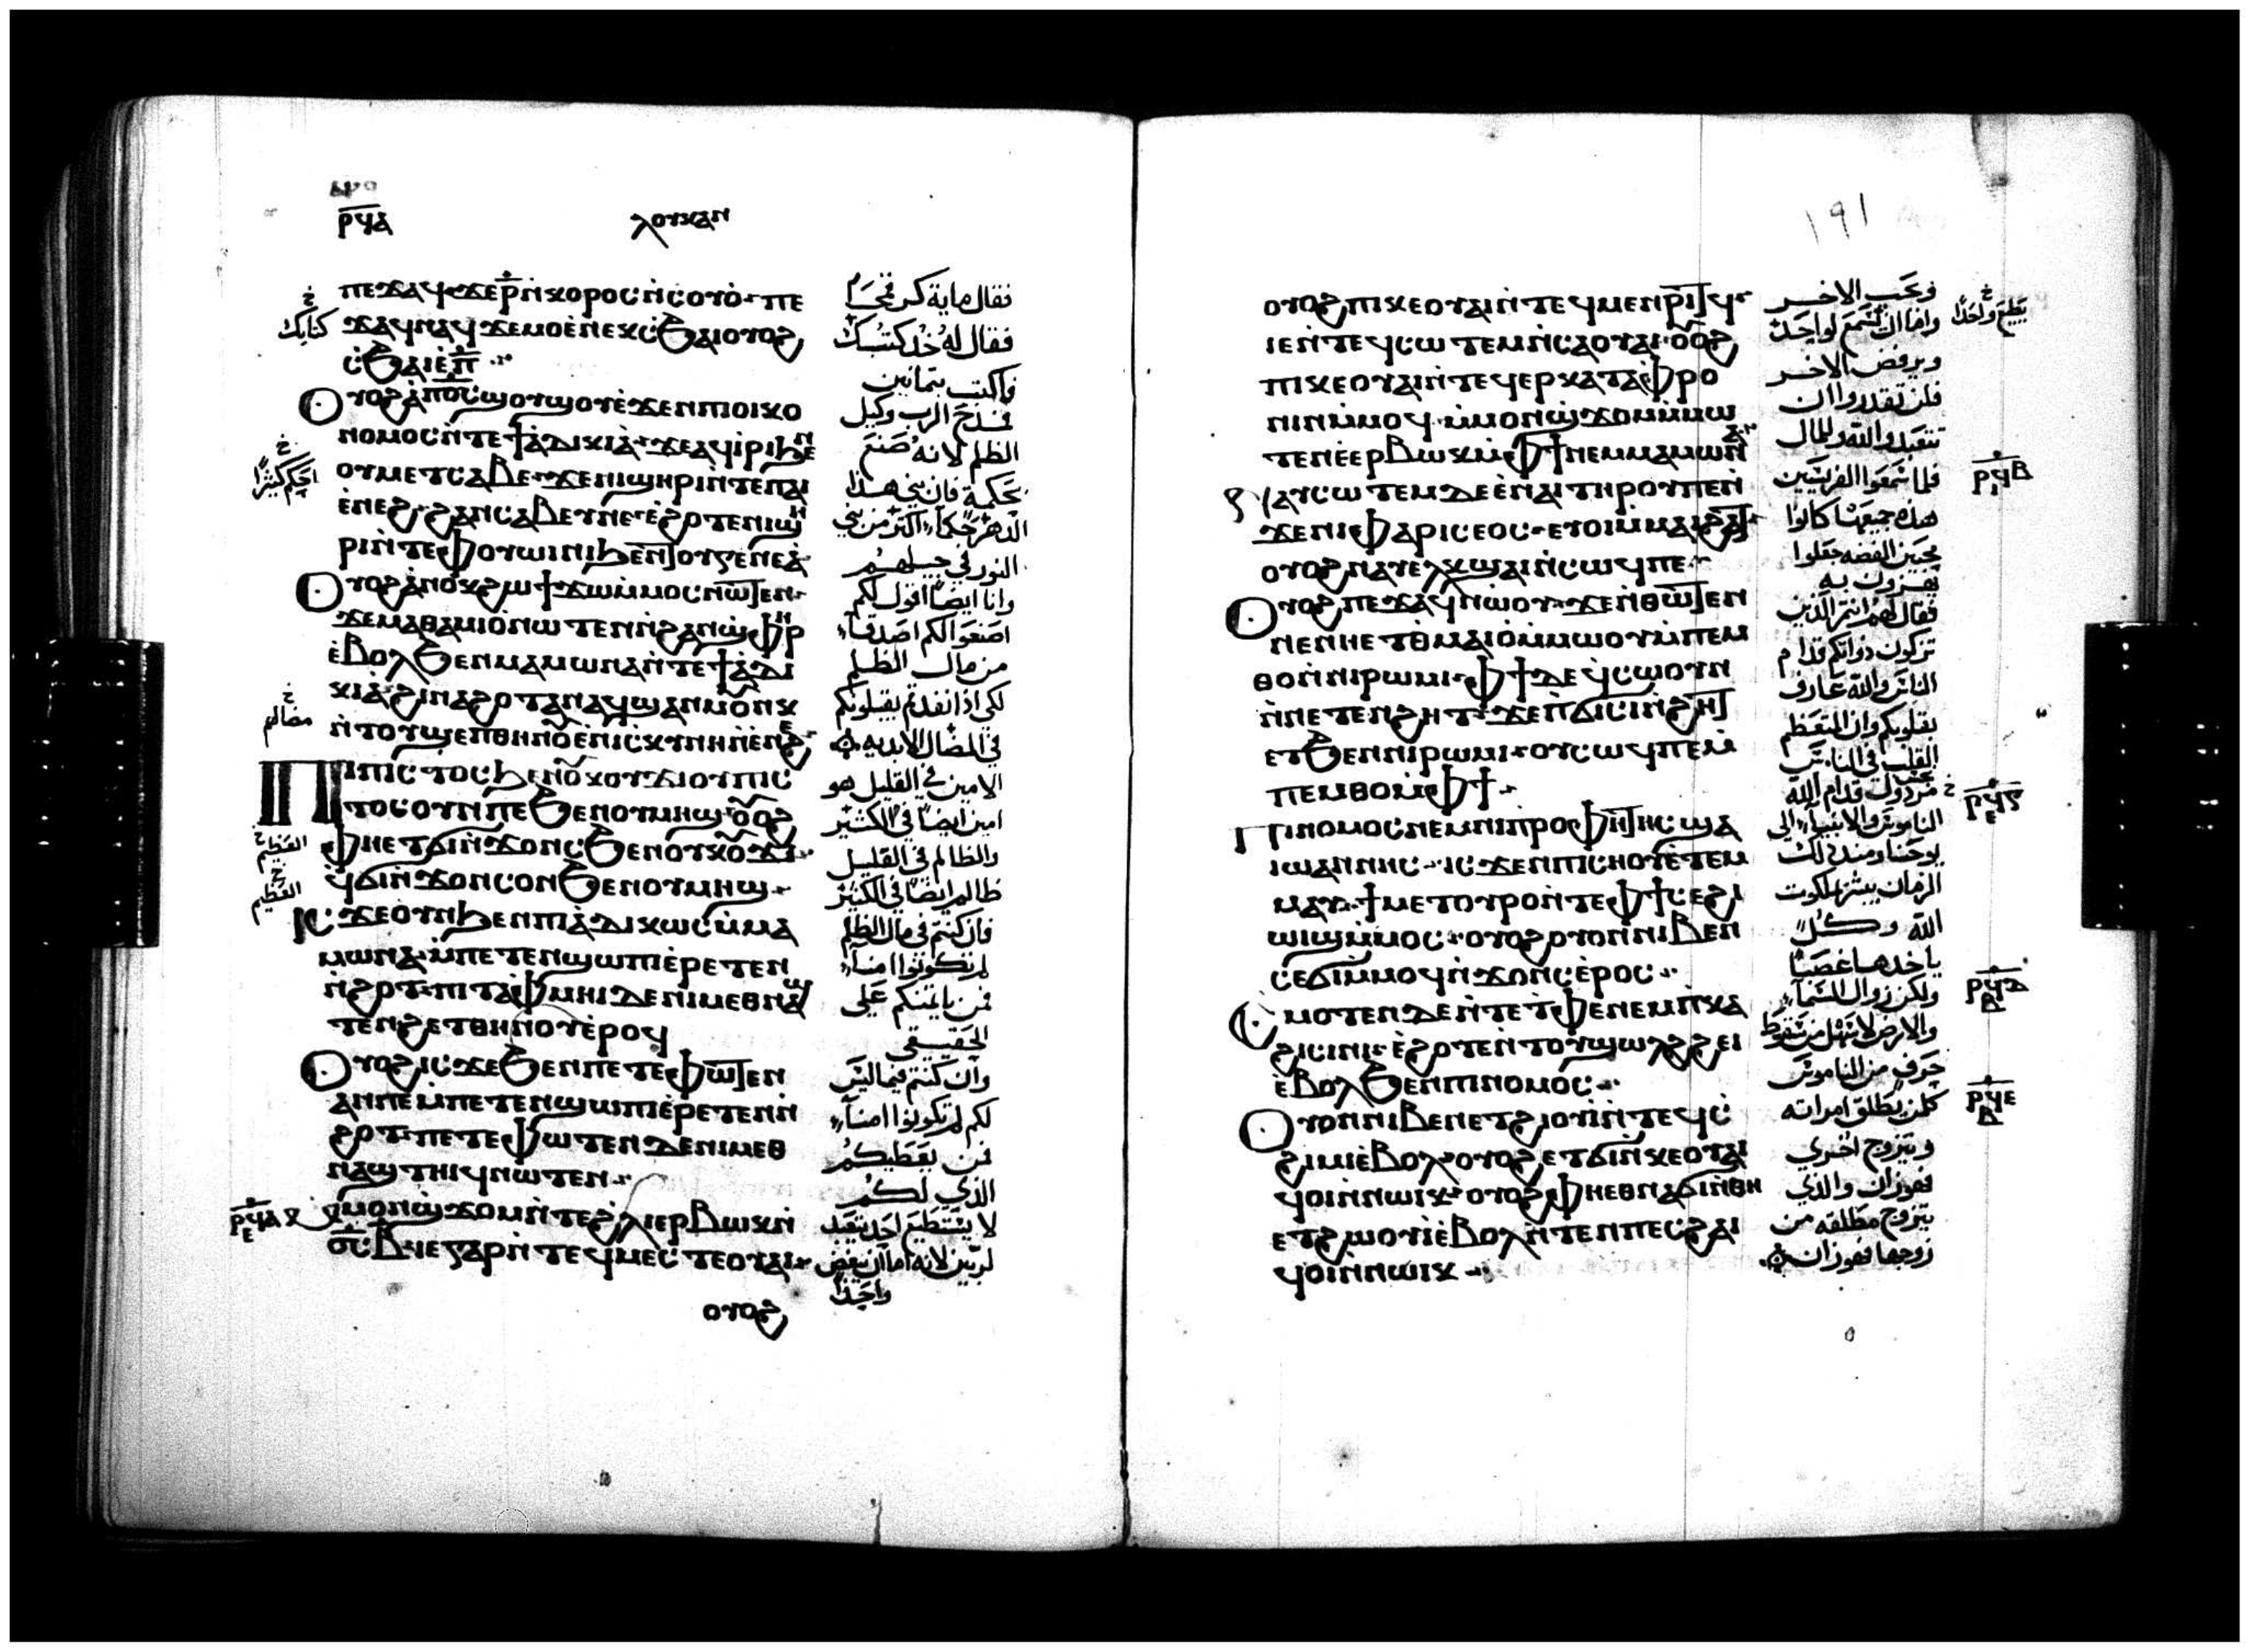 ⲣϥⲁ
ⲗⲟⲩⲕⲁⲛ
ⲡⲉϫⲁϥ ϫⲉ ⲣ̅ ⲛ̀ⲕⲟⲣⲟⲥ ⲛ̀ⲥⲟⲩⲟ̀ ⲡⲉ
ϫⲁϥ ⲛⲁϥ ϫⲉ ⲙⲟ ⲉ̀ⲛⲉⲕⲥ̀ϧⲁⲓ ⲟⲩⲟϩ
ⲥ̀ϧⲁⲓ ⲉ̀ ⲡ̅
ⲟⲩⲟϩ ⲁ̀ ⲡⲟ̅ⲥ̅ ϣⲟⲩϣⲟⲩ ⲉ̀ϫⲉⲛ ⲡⲓⲟⲓⲕⲟ
ⲛⲟⲙⲟⲥ ⲛ̀ⲧⲉ ϯⲁ̀ⲇⲓⲕⲓⲁ̀ ϫⲉ ⲁϥⲓ̀ⲣⲓ ϧⲉⲛ
ⲟⲩⲙⲉⲧⲥⲁⲃⲉ ϫⲉ ⲛⲓϣⲏⲣⲓ ⲛ̀ⲧⲉ ⲡⲁⲓ
ⲉ̀ⲛⲉϩ ϩⲁⲛⲥⲁⲃⲉⲩ ⲛⲉ ⲉ̀ϩⲟⲧⲉ ⲛⲓϣⲏ
ⲣⲓ ⲛ̀ⲧⲉ ⲫⲟⲩⲱⲓⲛⲓ ϧⲉⲛ ⲧⲟⲩⲅⲉⲛⲉⲁ̀
ⲟⲩⲟϩ ⲁ̀ⲛⲟⲕ ϩⲱ ϯϫⲱ ⲙ̀ⲙⲟⲥ ⲛⲱⲧⲉⲛ
ϫⲉ ⲙⲁⲑⲁⲙⲓⲟ̀ ⲛⲱⲧⲉⲛ ⲛ̀ϩⲁⲛϣ̀ⲫⲏⲣ
ⲉ̀ⲃⲟⲗ ϧⲉⲛ ⲙⲁⲙⲱⲛⲁ ⲛ̀ⲧⲉ ϯⲁ̀ⲇⲓ
ⲕⲓⲁ̀ ϩⲓⲛⲁ ϩⲟⲧⲁⲛ ⲁϥϣⲁⲛⲙⲟⲩⲛⲕ
ⲛ̀ⲧⲟⲩϣⲉⲡ ⲑⲏⲛⲟⲩ ⲉ̀ⲛⲓⲥⲕⲩⲛⲏ ⲛ̀ⲉ̀ⲛⲉϩ
ⲡⲓⲡⲓⲥⲧⲟⲥ ϧⲉⲛ ⲟⲩⲕⲟⲩϫⲓ ⲟⲩⲡⲓⲥ
ⲧⲟⲥ ⲟⲛ ⲡⲉ ϧⲉⲛ ⲟⲩⲙⲏϣ ⲟⲩⲟϩ
ⲫⲏ ⲉⲧϭⲓ ⲛ̀ϫⲟⲛⲥ ϧⲉⲛ ⲟⲩⲕⲟⲩϫⲓ
ϥϭⲓ ⲛ̀ϫⲟⲛⲥ ⲟⲛ ϧⲉⲛ ⲟⲩⲙⲏϣ
ⲓⲥϫⲉ ⲟⲩⲛ ϧⲉⲛ ⲡⲓⲁ̀ⲇⲓⲕⲱⲥ ⲙ̀ⲙⲁ
ⲙⲱⲛⲁ ⲙ̀ⲡⲉⲧⲉⲛϣⲱⲡⲓ ⲉ̀ⲣⲉⲧⲉⲛ
ⲛ̀ϩⲟⲧ ⲡⲓⲧⲁⲫⲙⲏⲓ ⲇⲉ ⲛⲓⲙ ⲉⲑⲛⲁϣ
ⲧⲉⲛϩⲉⲧ ⲑⲏⲛⲟⲩ ⲉ̀ⲣⲟϥ
ⲟⲩⲟϩ ⲓⲥϫⲉ ϧⲉⲛ ⲡⲉⲧⲉ ⲫⲱⲧⲉⲛ
ⲁⲛ ⲡⲉ ⲙ̀ⲡⲉⲧⲉⲛϣⲱⲡⲓ ⲉ̀ⲣⲉⲧⲉⲛⲛ̀
ϩⲟⲧ ⲡⲉⲧⲉ ⲫⲱⲧⲉⲛ ⲇⲉ ⲛⲓⲙ ⲉⲑ
ⲛⲁϣⲧⲏⲓϥ ⲛⲱⲧⲉⲛ
ⲙ̀ⲙⲟⲛ ϣ̀ϫⲟⲙ ⲛ̀ⲧⲉ ϩ̀ⲗⲓ ⲉⲣⲃⲱⲕ ⲛ̀
ⲟ̅ⲥ̅ ⲃ̅ ⲓⲉ ⲅⲁⲣ ⲛ̀ⲧⲉϥⲙⲉⲥⲧⲉ ⲟⲩⲁⲓ
ⲟⲩⲟϩ
فقال ماية كر قمحا
فقال له خذ كتبك
واكتب ثمانين
فمدح الرب وكيل
الظلم لانه صنع
بحكمة فان بني هذا
الدهر حكما اكثر من بني
النور في جيلهم
وانا ايضا اقول لكم
اصنعوا لكم اصدقا
من مال الظلم
لكي اذا نفد يقبلونكم
في المضال الابديه
الامين في القليل هو
امين ايضا في الكثير
والظالم في القليل
ظالم ايضا في الكثير
فان كنتم في مال الظلم
لم تكونوا امنا
فمن ياتمنكم على
الحقيقي
وان كنتم فيما ليس
لكم لم تكونوا امنا
فمن يعطيكم
الذي لكم
لا يستطيع احد يتعبد
لربين لانه اما ان يبغض
واحدا
كتابك
احكم كثيرا
مضالهم
العظيم
العظيم
١٩١
ⲟⲩⲟϩ ⲡⲓⲕⲉⲟⲩⲁⲓ ⲛ̀ⲧⲉϥⲙⲉⲛⲣⲓⲧϥ
ⲓⲉ ⲛ̀ⲧⲉϥⲥⲱⲧⲉⲙ ⲛ̀ⲥⲁ ⲟⲩⲁⲓ ⲟⲩⲟϩ
ⲡⲓⲕⲉⲟⲩⲁⲓ ⲛ̀ⲧⲉϥⲉⲣⲕⲁⲧⲁⲫⲣⲟ
ⲛⲓⲛ ⲙ̀ⲙⲟϥ ⲙ̀ⲙⲟⲛ ϣ̀ϫⲟⲙ ⲙ̀ⲙⲱ
ⲧⲉⲛ ⲉ̀ⲉⲣⲃⲱⲕ ⲙ̀ⲫϯ ⲛⲉⲙ ⲙⲁⲙⲱⲛⲁ
ⲁⲩⲥⲱⲧⲉⲙ ⲇⲉ ⲉ̀ⲛⲁⲓ ⲧⲏⲣⲟⲩ ⲡⲉ ⲛ̀
ϫⲉ ⲛⲓⲫⲁⲣⲓⲥⲉⲟⲥ ⲉⲩⲟⲓ ⲙ̀ⲙⲁⲓϩⲁⲧ
ⲟⲩⲟϩ ⲛⲁⲩⲉⲗⲕϣⲁⲓ ⲛ̀ⲥⲱϥ ⲡⲉ
ⲟⲩⲟϩ ⲡⲉϫⲁϥ ⲛⲱⲟⲩ ϫⲉ ⲛ̀ⲑⲱⲧⲉⲛ
ⲛⲉ ⲛⲏ ⲉⲧⲑⲙⲁⲓⲟ̀ ⲙ̀ⲙⲱⲟⲩ ⲙ̀ⲡⲉⲙ
ⲑⲟ ⲛ̀ⲛⲓⲣⲱⲙⲓ ⲫϯ ⲇⲉ ϥ̀ⲥⲱⲟⲩⲛ
ⲛ̀ⲛⲉⲧⲉⲛϩⲏⲧ ϫⲉ ⲡ̀ϭⲓⲥⲓ ⲛ̀ϩⲏⲧ
ⲉⲧϧⲉⲛ ⲛⲓⲣⲱⲙⲓ ⲟⲩⲥⲱϥ ⲡⲉ ⲙ̀
ⲡⲉⲙⲑⲟ ⲙ̀ⲫϯ
ⲡⲓⲛⲟⲙⲟⲥ ⲛⲉⲙ ⲛⲓⲡⲣⲟⲫⲏⲧⲏⲥ ϣⲁ
ⲓⲱⲁⲛⲛⲏⲥ ⲓⲥϫⲉⲛ ⲡⲓⲥⲏⲟⲩ ⲉ̀ⲧⲉⲙ
ⲙⲁⲩ ϯⲙⲉⲧⲟⲩⲣⲟ ⲛ̀ⲧⲉ ⲫϯ ⲥⲉϩⲓ
ϣⲓϣ ⲙ̀ⲙⲟⲥ ⲟⲩⲟϩ ⲟⲩⲟⲛ ⲛⲓⲃⲉⲛ
ⲥⲉϭⲓ ⲙ̀ⲙⲟϥ ⲛ̀ϫⲟⲛⲥ ⲉ̀ⲣⲟⲥ
ⲥⲙⲟⲧⲉⲛ ⲇⲉ ⲛ̀ⲧⲉ ⲧ̀ⲫⲉ ⲛⲉⲙ ⲡ̀ⲕⲁ
ϩⲓ ⲥⲓⲛⲓ ⲉ̀ϩⲟⲧⲉ ⲛ̀ⲧⲟⲩϣⲱⲗϩ ϩⲉⲓ
ⲉ̀ⲃⲟⲗ ϧⲉⲛ ⲡⲓⲛⲟⲙⲟⲥ
ⲟⲩⲟⲛ ⲛⲓⲃⲉⲛ ⲉⲧϩⲓⲟⲩⲓ ⲛ̀ⲧⲉϥⲥ̀
ϩⲓⲙⲓ ⲉ̀ⲃⲟⲗ ⲟⲩⲟϩ ⲉⲧϭⲓ ⲛ̀ⲕⲉⲟⲩⲁⲓ
ϥⲟⲓ ⲛ̀ⲛⲱⲓⲕ ⲟⲩⲟϩ ⲫⲏ ⲉⲑⲛⲁϭⲓ ⲛ̀ⲑⲏ
ⲉⲧϩⲱⲟⲩⲓ ⲉ̀ⲃⲟⲗ ⲛ̀ⲧⲉⲛ ⲡⲉⲥϩⲁⲓ
ϥⲟⲓ ⲛ̀ⲛⲱⲓⲕ
ويحب الاخر
واما ان يسمع لواحد
ويرفض الاخر
فلن تقدروا ان
تتعبدوا لله وللمال
فلما سمعوا الفريسيين
هذه جميعها كانوا
محبين الفضه جعلوا
يهزون به
فقال لهم انتم الذين
تزكون ذواتكم قدام
الناس والله عارف
بقلوبكم وان المتعظم
القلب في الناس
مرذول قدام الله
الناموس والانبيا الى
يوحنا ومن ذلك
الزمان يبشر بملكوت
الله وكل
ياخذها غصبا
ولكن زوال السما
والارض لاسهل من سقوط
حرف من الناموس
كلمن يطلق امراته
ويتزوج اخرى
فهو زان والذي
يتزوج مطلقه من
زوجها فهو زان
يطيع واحدا
ⲣϥⲃ
ⲣϥⲅ
ⲣϥⲇ
ⲣϥⲉ